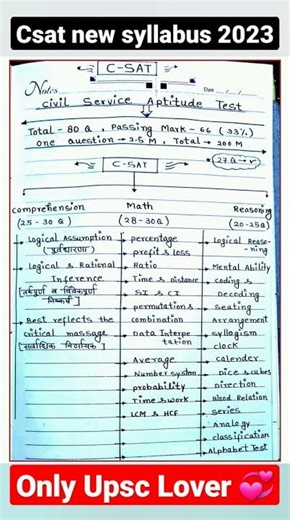 Csat new syllabus 2023
C-SAT
Notes
Date
Civil Service Aptitude Test
Total - 80 Q, Passing Mark - 66 (33%)
one question → 2.5 M, Total → 200 M
C-SAT
* 27 Q → ✓
Comprehension
(25-30 Q)
Math
(28-30Q)
Reasoning
(20-25Q)
→ Logical Assumption
(पूर्वधारणा)
→ Logical & Rational
Inference
[तर्कपूर्ण व विवेकपूर्ण
निष्कर्ष]
→ Best reflects the
critical massage
[सर्वाधिक निर्णायक]
→ percentage
→ profit & loss
→ Ratio
→ Time & Distance
→ SI & CI
→ permutation &
combination
→ Data Interpe
tation
→ Average
→ Number system
→ probability
→ Time & work
→ LCM & HCF
→ Logical Reaso-
ning
→ Mental Ability
→ coding &
Decoding
→ Seating
Arrangement
→ syllogism
→ clock
→ calender
→ Dice & cubes
→ Direction
→ Blood Relation
→ series
→ Analogy
→ classification
→ Alphabet Test
Only Upsc Lover 💞